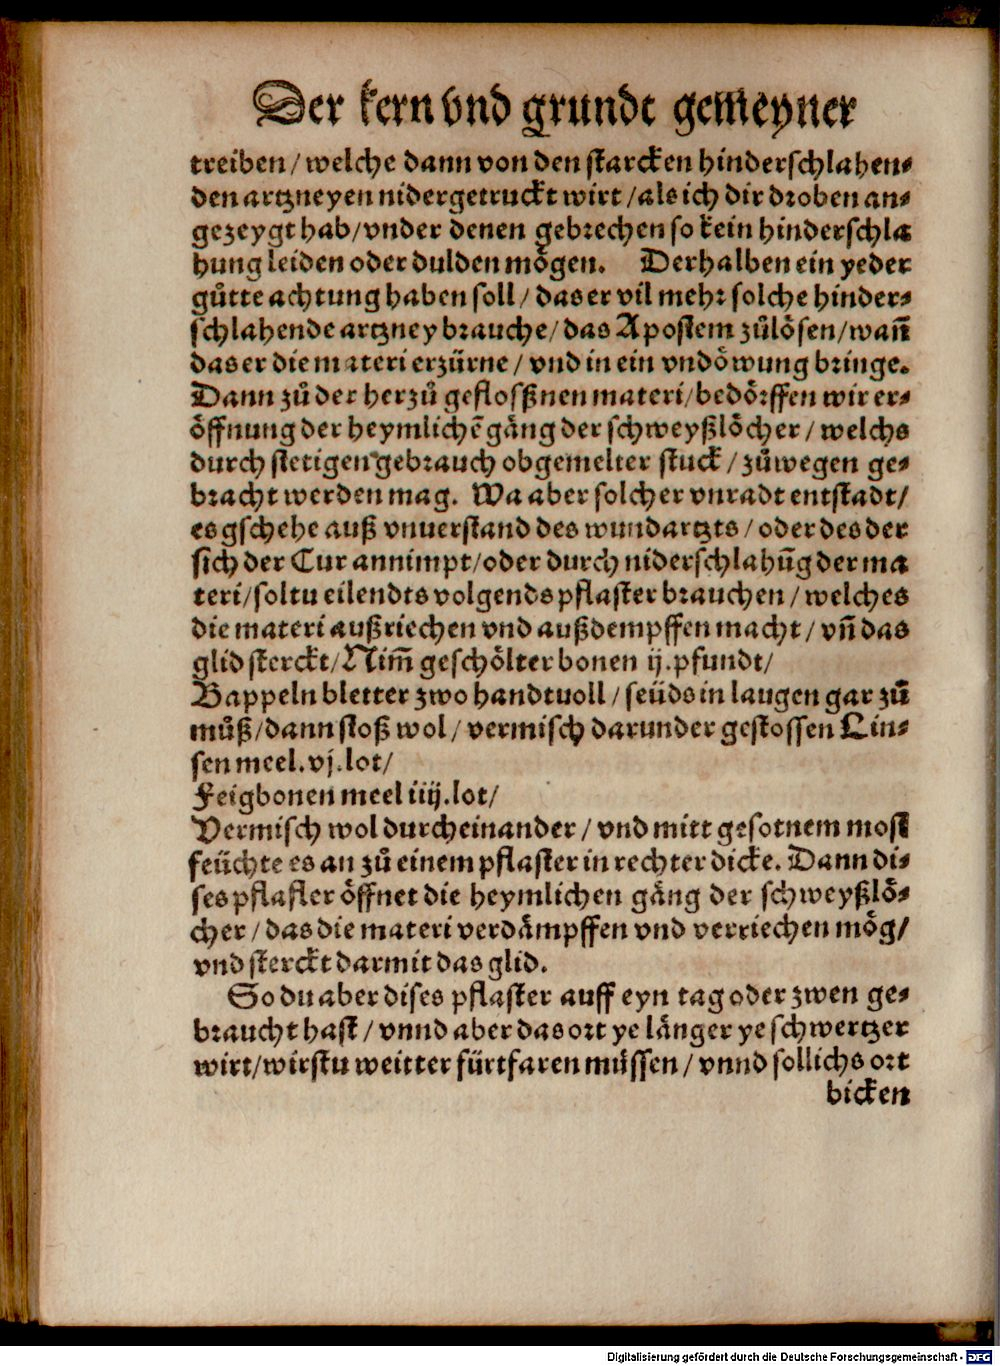 Der kern vnd grundt gemeyner
treiben / welche dann von den starcken hinderschlahen⸗
den artzneyen nidergetruckt wirt / als ich dir droben an⸗
gezeygt hab / vnder denen gebrechen so kein hinderschla
hung leiden oder dulden mögen. Derhalben ein yeder
gůtte achtung haben soll / das er vil mehr solche hinder⸗
schlahende artzney brauche / das Apostem zůlösen / wañ
das er die materi erzürne / vnd in ein vndöwung bringe.
Dann zů der herzů geflosßnen materi / bedörffen wir er⸗
öffnung der heymlichē gäng der schweyßlöcher / welchs
durch stetigen gebrauch obgemelter stuck / zůwegen ge⸗
bracht werden mag. Wa aber solcher vnradt entstadt /
es gschehe auß vnuerstand des wundartzts / oder des der
sich der Cur annimpt / oder durch niderschlahūg der ma
teri / soltu eilendts volgends pflaster brauchen / welches
die materi außriechen vnd außdempffen macht / vñ das
glid sterckt / Nim̃ geschölter bonen ij. pfundt /
Bappeln bletter zwo handtuoll / seüds in laugen gar zů
můß / dann stoß wol / vermisch darunder gestossen Lin⸗
sen meel. vj. lot /
Feigbonen meel iiij. lot /
Vermisch wol durcheinander / vnd mitt gesotnem most
feüchte es an zů einem pflaster in rechter dicke. Dann di⸗
ses pflaster öffnet die heymlichen gäng der schweyßlö⸗
cher / das die materi verdämpffen vnd verriechen mög /
vnd sterckt darmit das glid.
So du aber dises pflaster auff eyn tag oder zwen ge⸗
braucht hast / vnnd aber das ort ye länger ye schwertzer
wirt / wirstu weitter fürtfaren müssen / vnnd sollichs ort
bicken
Digitalisierung gefördert durch die Deutsche Forschungsgemeinschaft - DFG